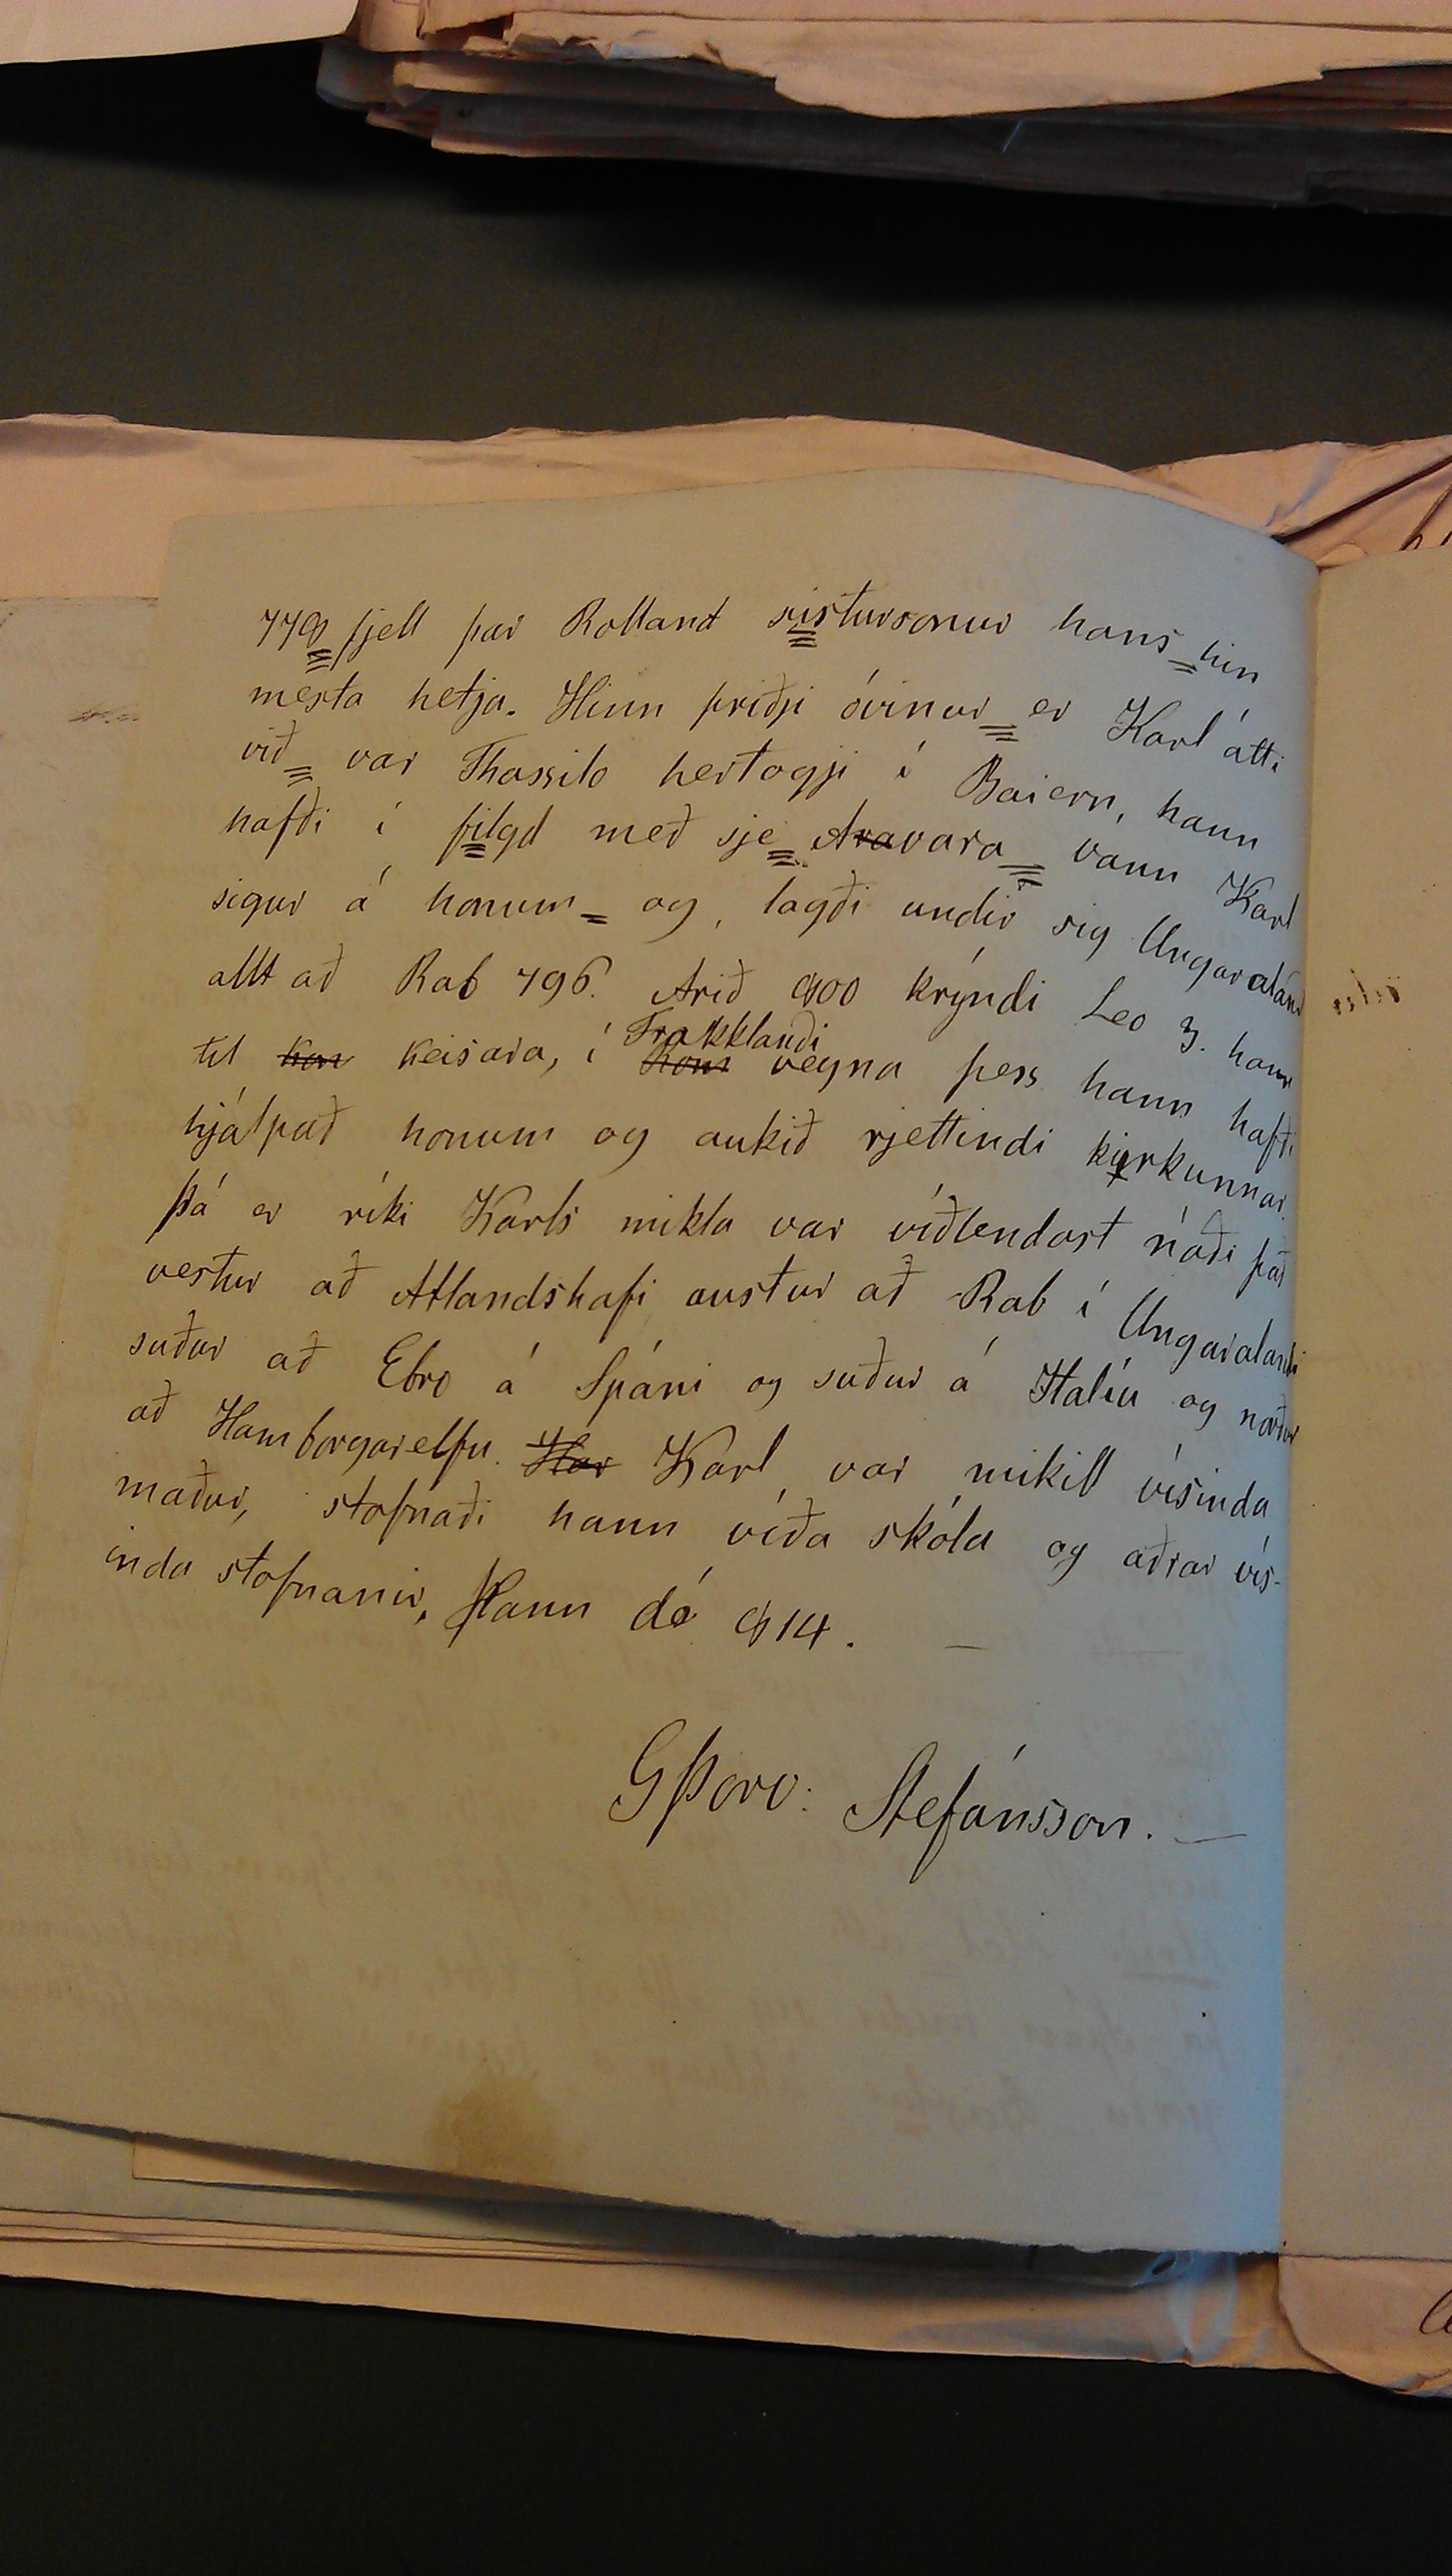 778 fjell þar Rolland sistursonur hans hin
mesta hetja. Hinn þriðji óvinur er Karl átti
við var Thassilo hertogji í Baiern, hann
hafði í filgd með sje Avara vann Karl
sigur á honum og lagði undir sig Ungaraland
allt að Rab 796. Arið 800 krýndi Leo 3. hann
til keisara, í Frakklandi vegna þess hann hafði
hjálpað honum og aukið rjettindi kirkunnar.
Þá er ríki Karls mikla var víðlendast náði það
vestur að Atlandshafi austur að Rab í Ungaralandi
suður að Ebro á Spáni og suður á Italíu og norður
að Hamborgarelfu. Karl var mikill vísinda
maður, stofnaði hann víða skóla og aðrar vís-
inda stofnanir, Hann dó 814. —
GÞorv: Stefánsson. —